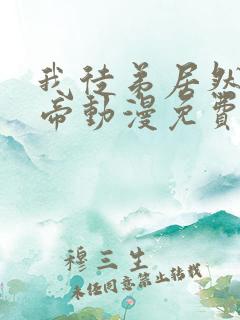 我徒弟居然
帝動漫免費
穆三生
未经同意禁止转载